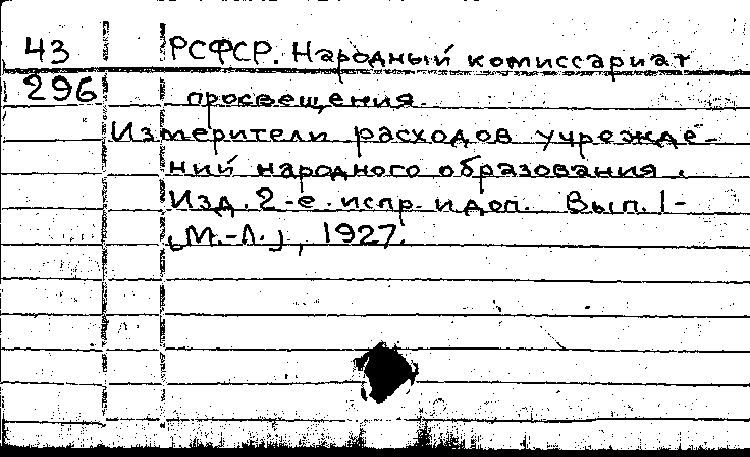 43 РСФСР. Народный комиссариат
296 просвещения.
Измерители расходов учрежде-
ний народного образования.
Изд. 2-е. испр. и доп. Вып. 1-
[М.-Л.], 1927.